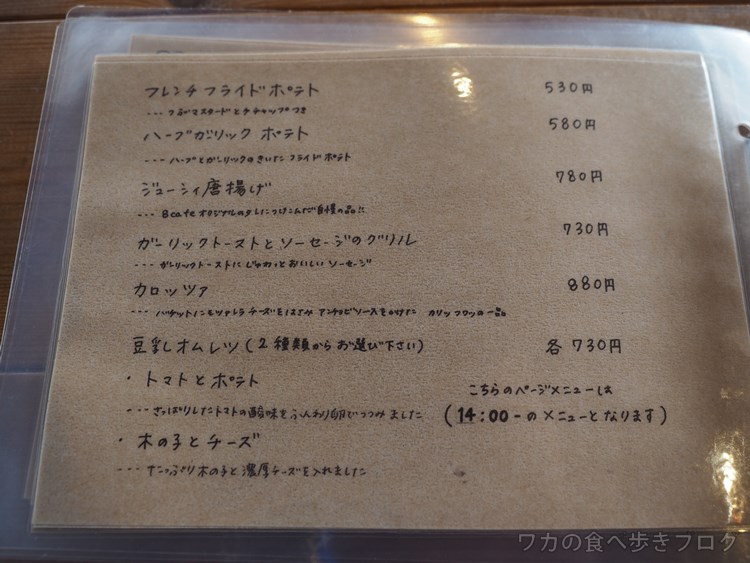 フレンチフライドポテト 530円
--- つぶマスタードとケチャップつき
ハーブガーリック ポテト 580円
--- ハーブとガーリックのきいたフライドポテト
ジューシィ唐揚げ 780円
--- 8cafeオリジナルのタレにつけこんだ自慢の品!!
ガーリックトーストとソーセージのグリル 730円
--- ガーリックトーストにじゅわっとおいしいソーセージ
カロッツァ 880円
--- バゲットにモツァレラチーズをはさみ アンチョビソースをかけた カリッフワッの一品
豆乳オムレツ(2種類からお選び下さい) 各730円
・トマトとポテト
こちらのページメニューは
--- さっぱりしたトマトの酸味をふんわり卵でつつみました
(14:00-のメニューとなります)
・木の子とチーズ
--- たっぷり木の子と濃厚チーズを入れました
ワカの食べ歩きブログ